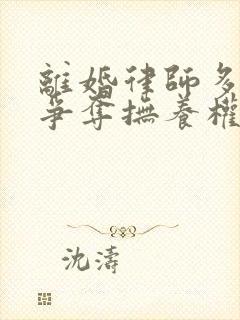 離婚律師多
爭奪撫養權
沈濤